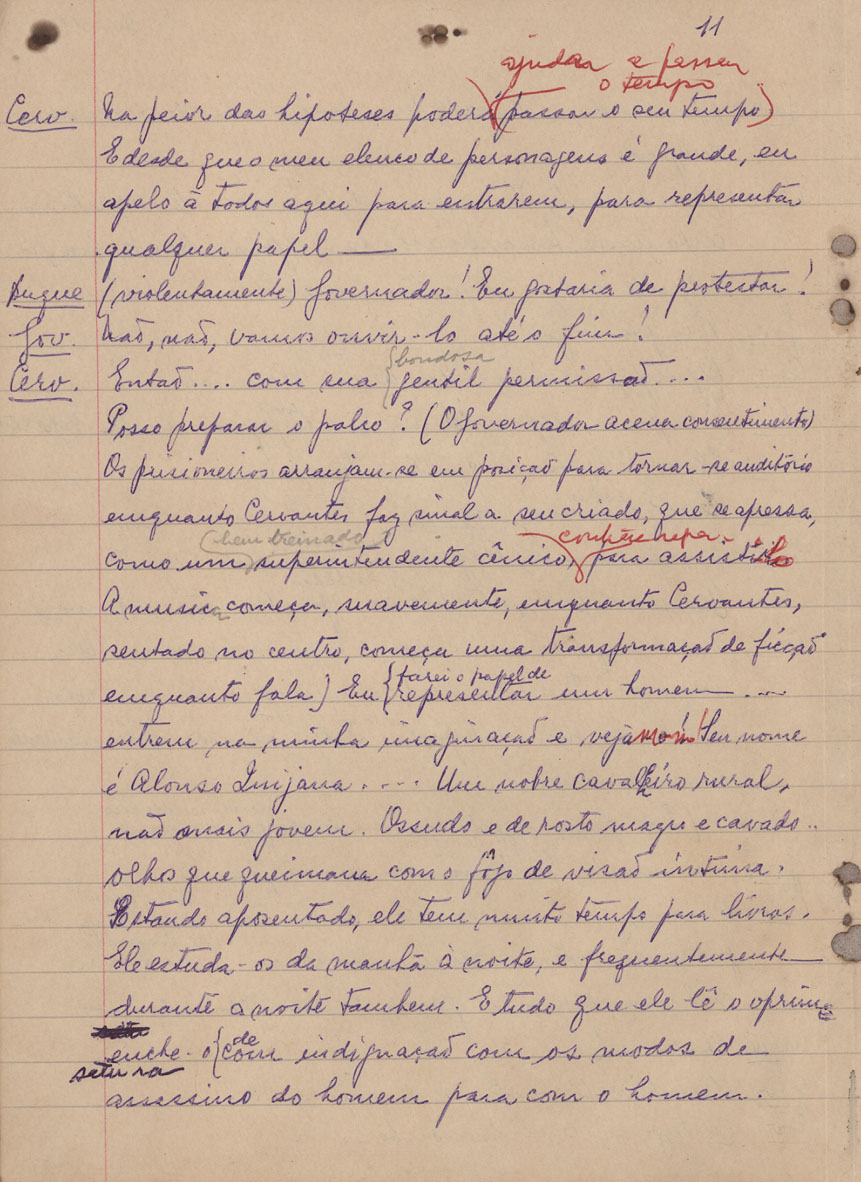 11
ajudar a passar
o tempo
Cerv. Na peior das hipoteses poderá (passar o seu tempo)
E desde que o meu elenco de personagens é grande, eu
apelo à todos aqui para entrarem, para representar
qualquer papel —
Duque (violentamente) Governador! Eu gostaria de protestar!
Gov. Não, não, vamos ouvir-lo até o fim!
bondosa
Cerv. Então.... com sua {gentil permissão....
Posso preparar o palco? (O Governador acena consentimento)
Os prisioneiros arranjam-se em posição para tornar-se auditório
enquanto Cervantes faz sinal a seu criado, que se apressa,
(bem treinado)
como um superintendente cênico, para assisti-lo
A musica começa, suavemente, enquanto Cervantes,
sentado no centro, começa uma transformação de ficção
{farei o papel de
enquanto fala) Eu {representar um homem ....
entrem na minha imaginação e vejam-no! Seu nome
é Alonso Quijana .... Um nobre cavalheiro rural,
não mais jovem. Ossudo e de rosto magro e cavado..
olhos que queimam com o fôgo de visão intima.
Estando aposentado, ele tem muito tempo para livros.
Ele estuda-os da manhã à noite, e frequentemente
durante a noite tambem. E tudo que ele lê o oprime
de
enche-o {com indignação com os modos de
satura
assassino do homem para com o homem.